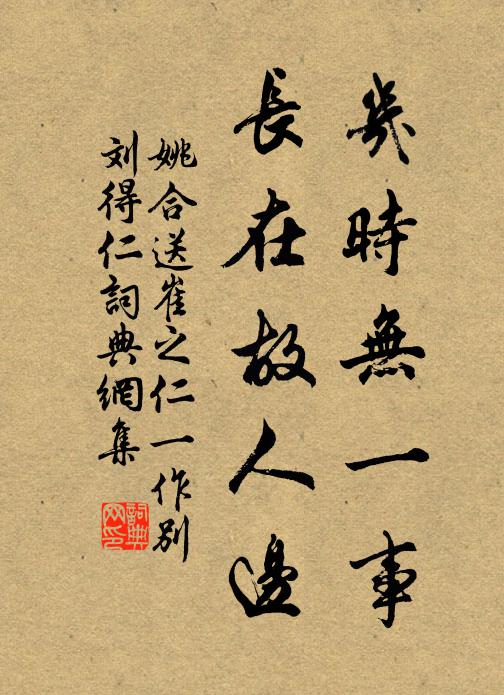 幾時無一事
長在故人邊
姚合送崔之仁一作別
刘得仁詞典網集
詞典网印